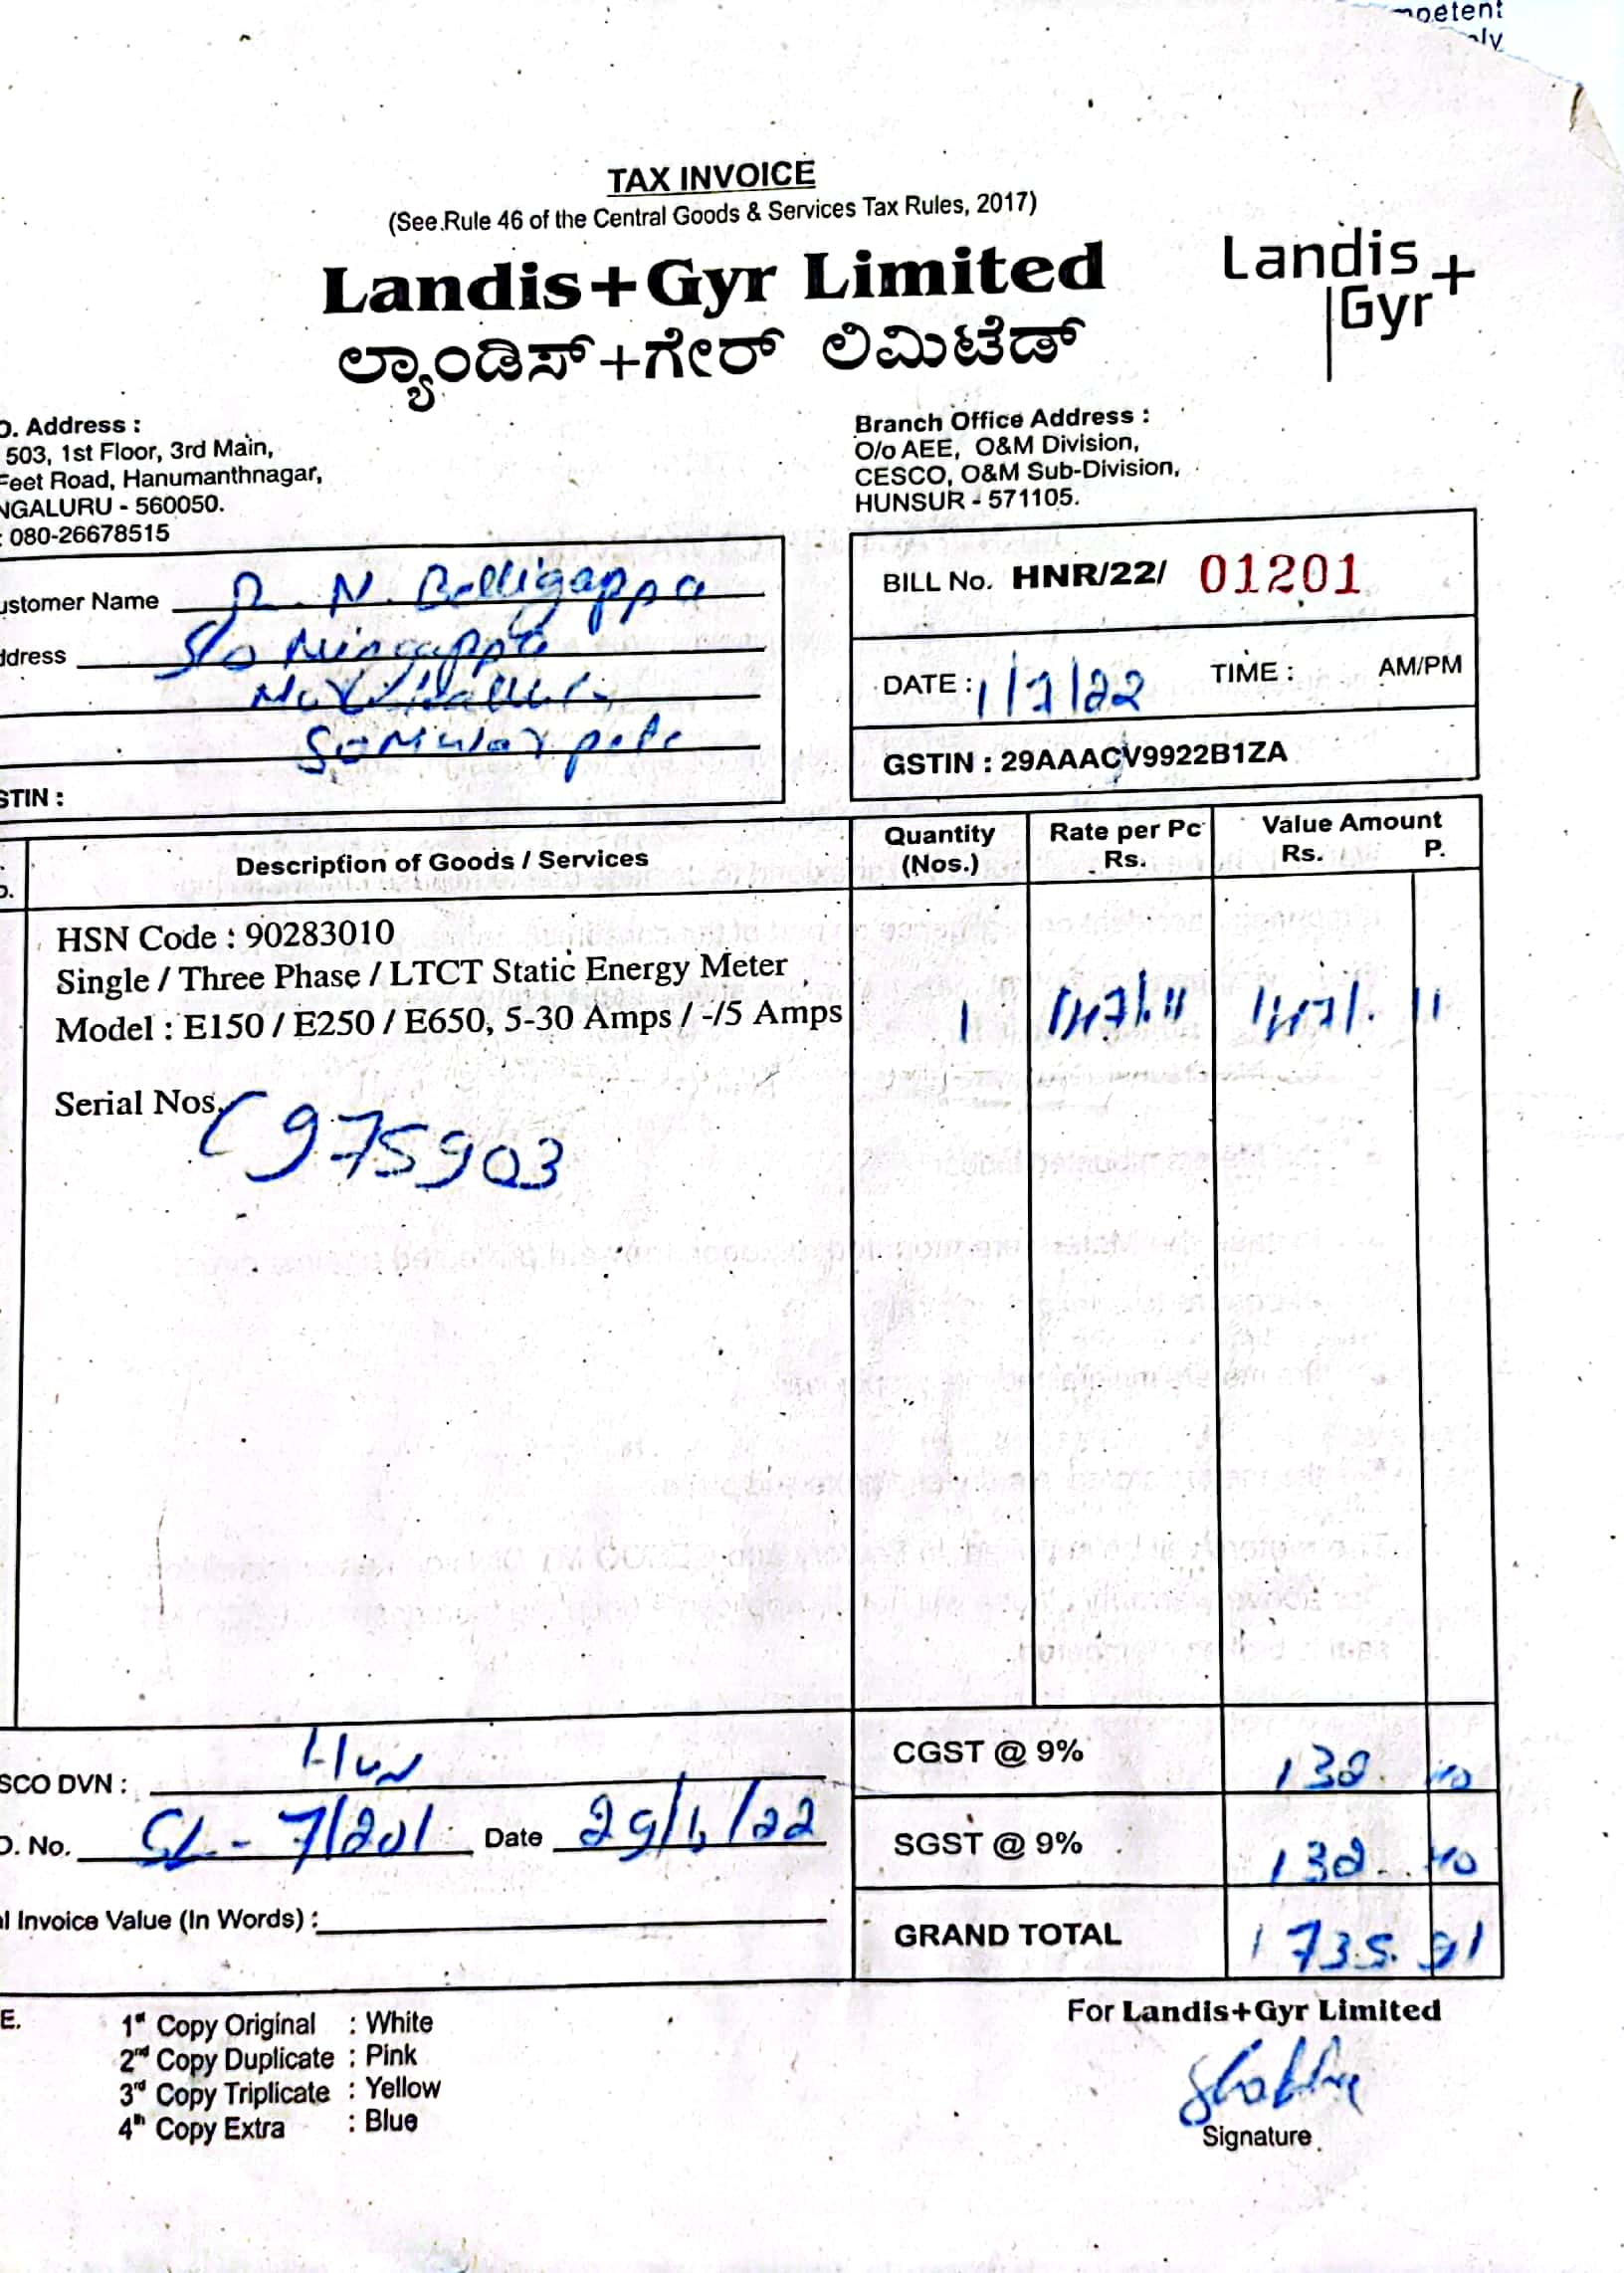 mpetent
nly
TAX INVOICE
(See.Rule 46 of the Central Goods & Services Tax Rules, 2017)
Landis+Gyr Limited
ಲ್ಯಾಂಡಿಸ್+ಗೇರ್ ಲಿಮಿಟೆಡ್
Landis
Gyr+
O. Address :
503, 1st Floor, 3rd Main,
Feet Road, Hanumanthnagar,
NGALURU - 560050.
: 080-26678515
Branch Office Address :
O/o AEE, O&M Division,
CESCO, O&M Sub-Division,
HUNSUR - 571105.
ustomer Name R. N. Bolligappa
ddress S/o Ningappa
STIN :
BILL No. HNR/22/ 01201
DATE : 1/7/22 TIME : AM/PM
GSTIN : 29AAACV9922B1ZA
o. Description of Goods / Services Quantity (Nos.) Rate per Pc Rs. Value Amount Rs. P.
HSN Code : 90283010
Single / Three Phase / LTCT Static Energy Meter
Model : E150 / E250 / E650, 5-30 Amps / -/5 Amps 1 1471.11 1471. 11
Serial Nos. C975903
SCO DVN : Hun
O. No. SL - 7/201 Date 29/1/22
l Invoice Value (In Words) :
CGST @ 9% 132. 40
SGST @ 9% 132. 40
GRAND TOTAL 1735. 91
E. 1st Copy Original : White
2nd Copy Duplicate : Pink
3rd Copy Triplicate : Yellow
4th Copy Extra : Blue
For Landis+Gyr Limited
Signature